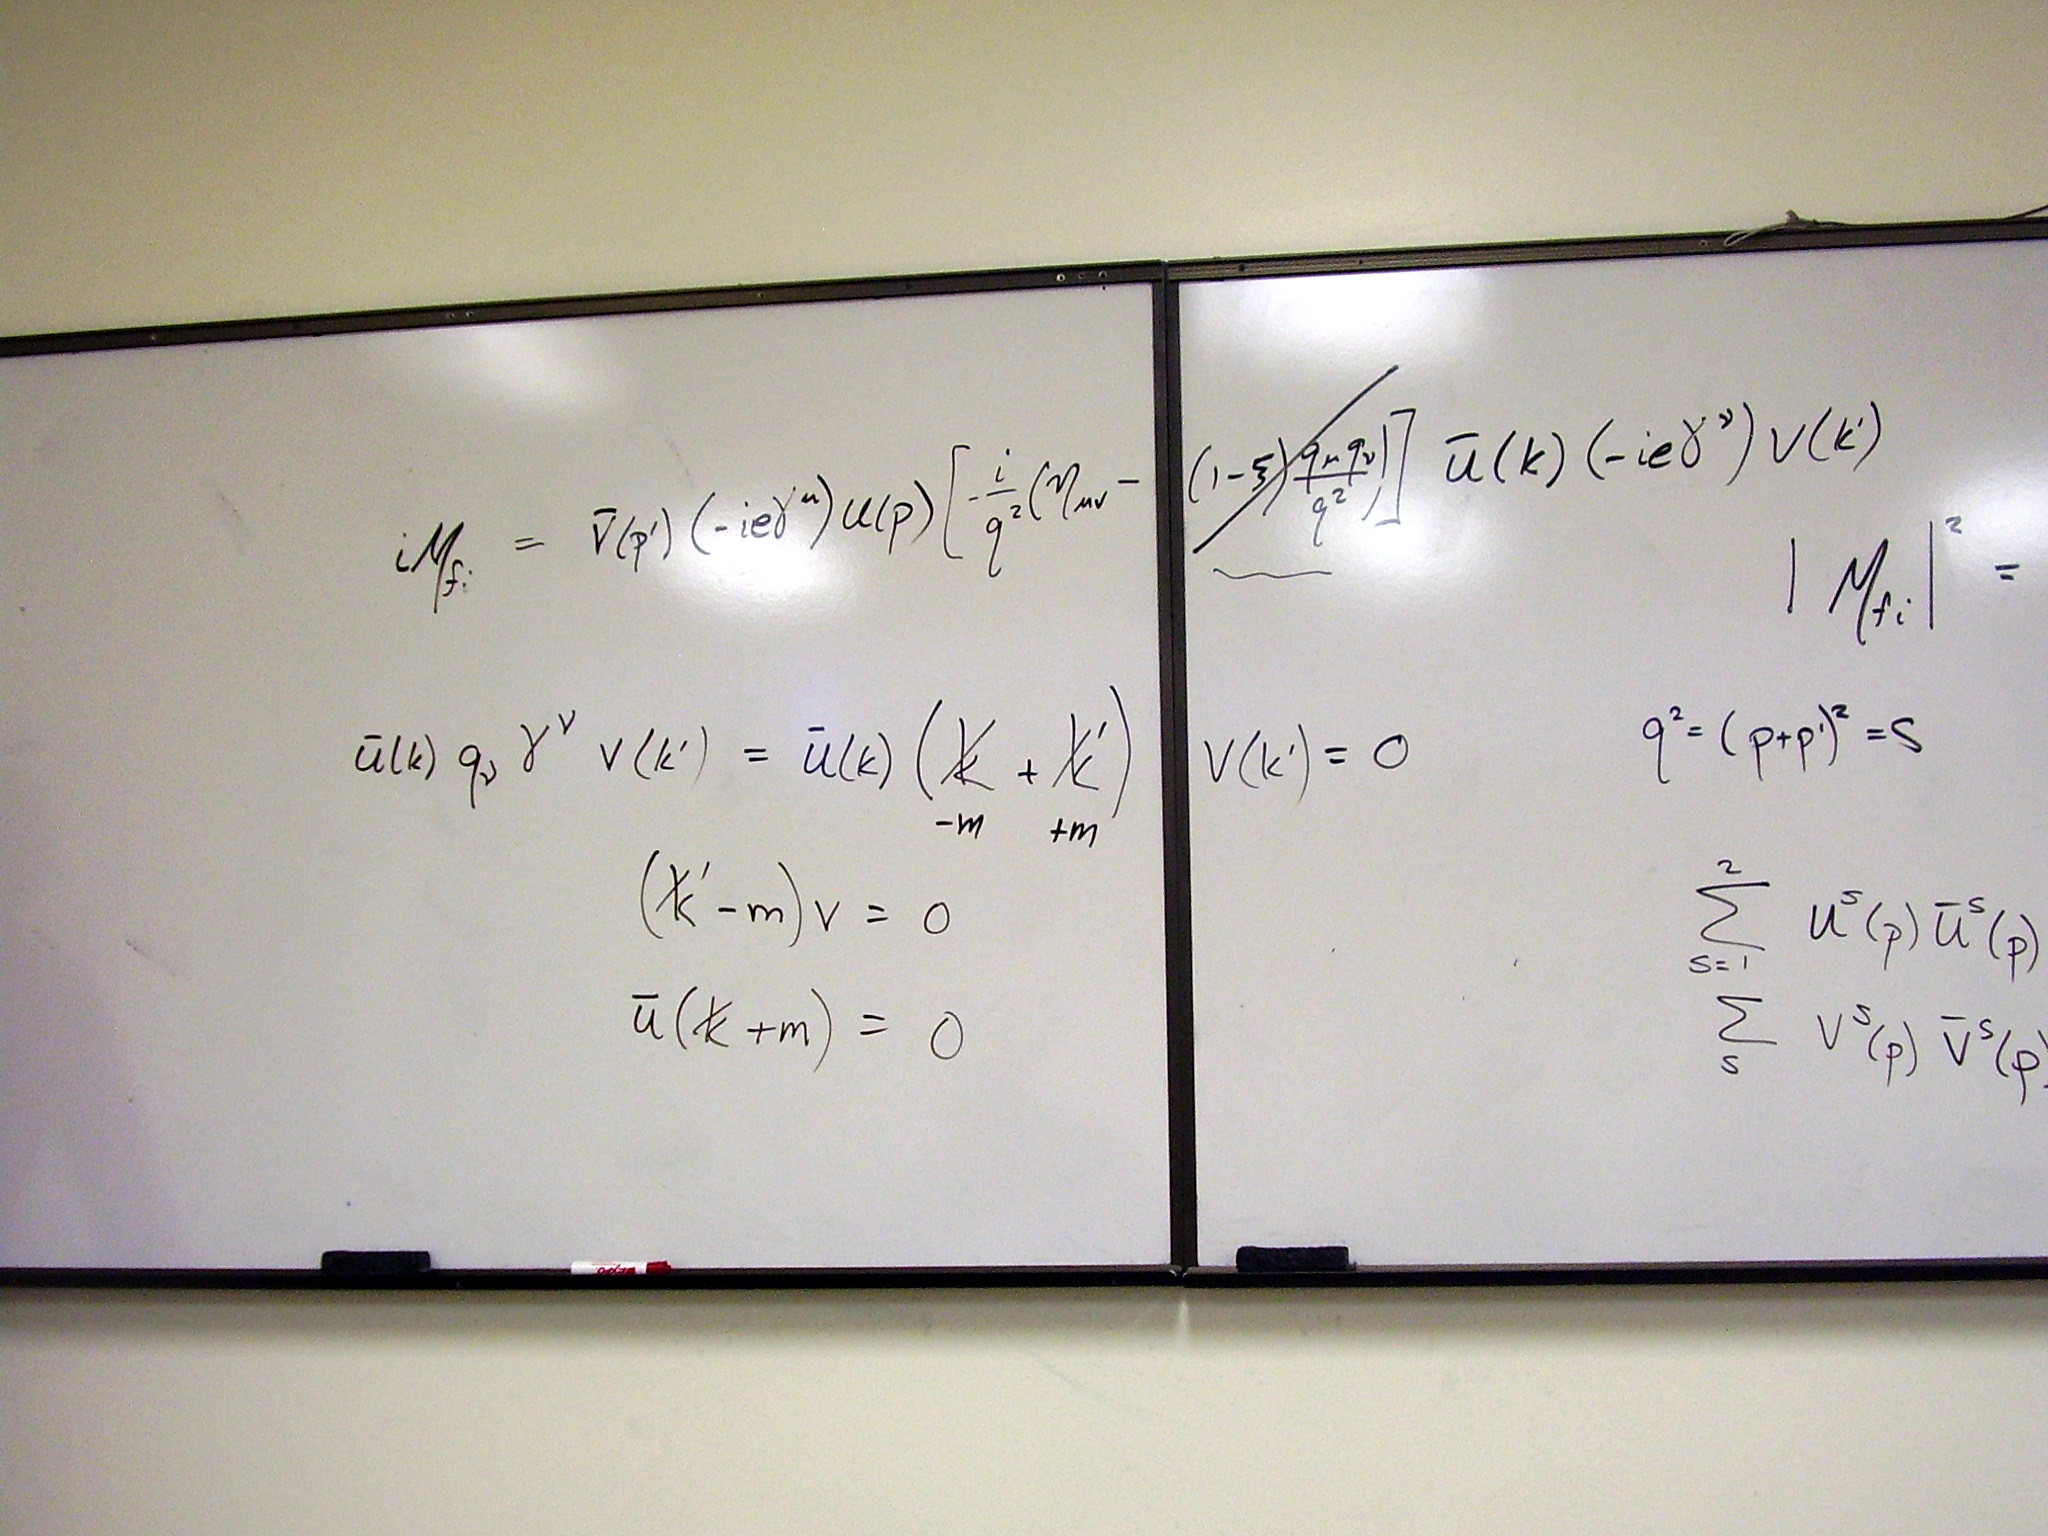 iM_fi = v̄(p') (-ieγ^μ) u(p) [ -i/q² (η_μν - (1-ξ) q_μ q_ν / q² ) ] ū(k) (-ieγ^ν) v(k')
|M_fi|² =
ū(k) q_ν γ^ν v(k') = ū(k) (k̸ + k̸') v(k') = 0
-m +m
q² = (p+p')² = s
(k̸' - m) v = 0
ū (k̸ + m) = 0
2
Σ u^s(p) ū^s(p)
s=1
Σ v^s(p) v̄^s(p)
s